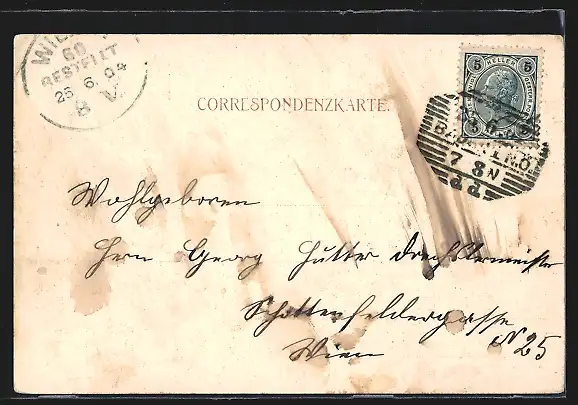 WIEN
60
BESTELLT
25.6.04
B V.
CORRESPONDENZKARTE.
5 HELLER 5
BADEN N.Ö.
7 8 N
Wohlgeboren
Herrn Georg Hutter Drechslermeister
Schottenfeldergasse
Wien № 25